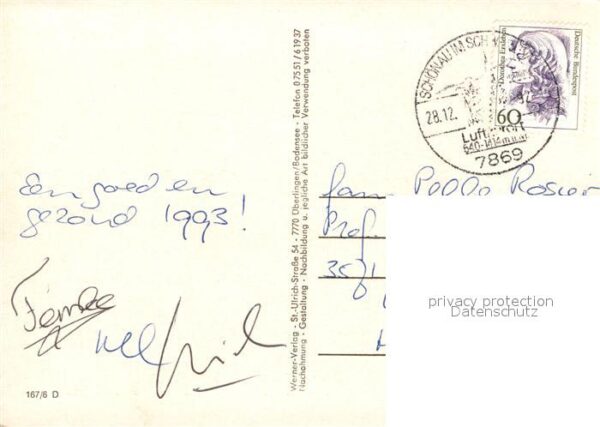 Een goed en
gezond 1993!
Femke
167/6 D
Werner-Verlag - St.-Ulrich-Straße 54 - 7770 Überlingen/Bodensee - Telefon 07551/61937
Nachahmung - Gestaltung - Nachbildung u. jegliche Art bildlicher Verwendung verboten
SCHÖNAU IM SCH
28.12.
Luft
7869
Dorothea Erxleben
Deutsche Bundespost
60
Fam
Prof.
privacy protection
Datenschutz